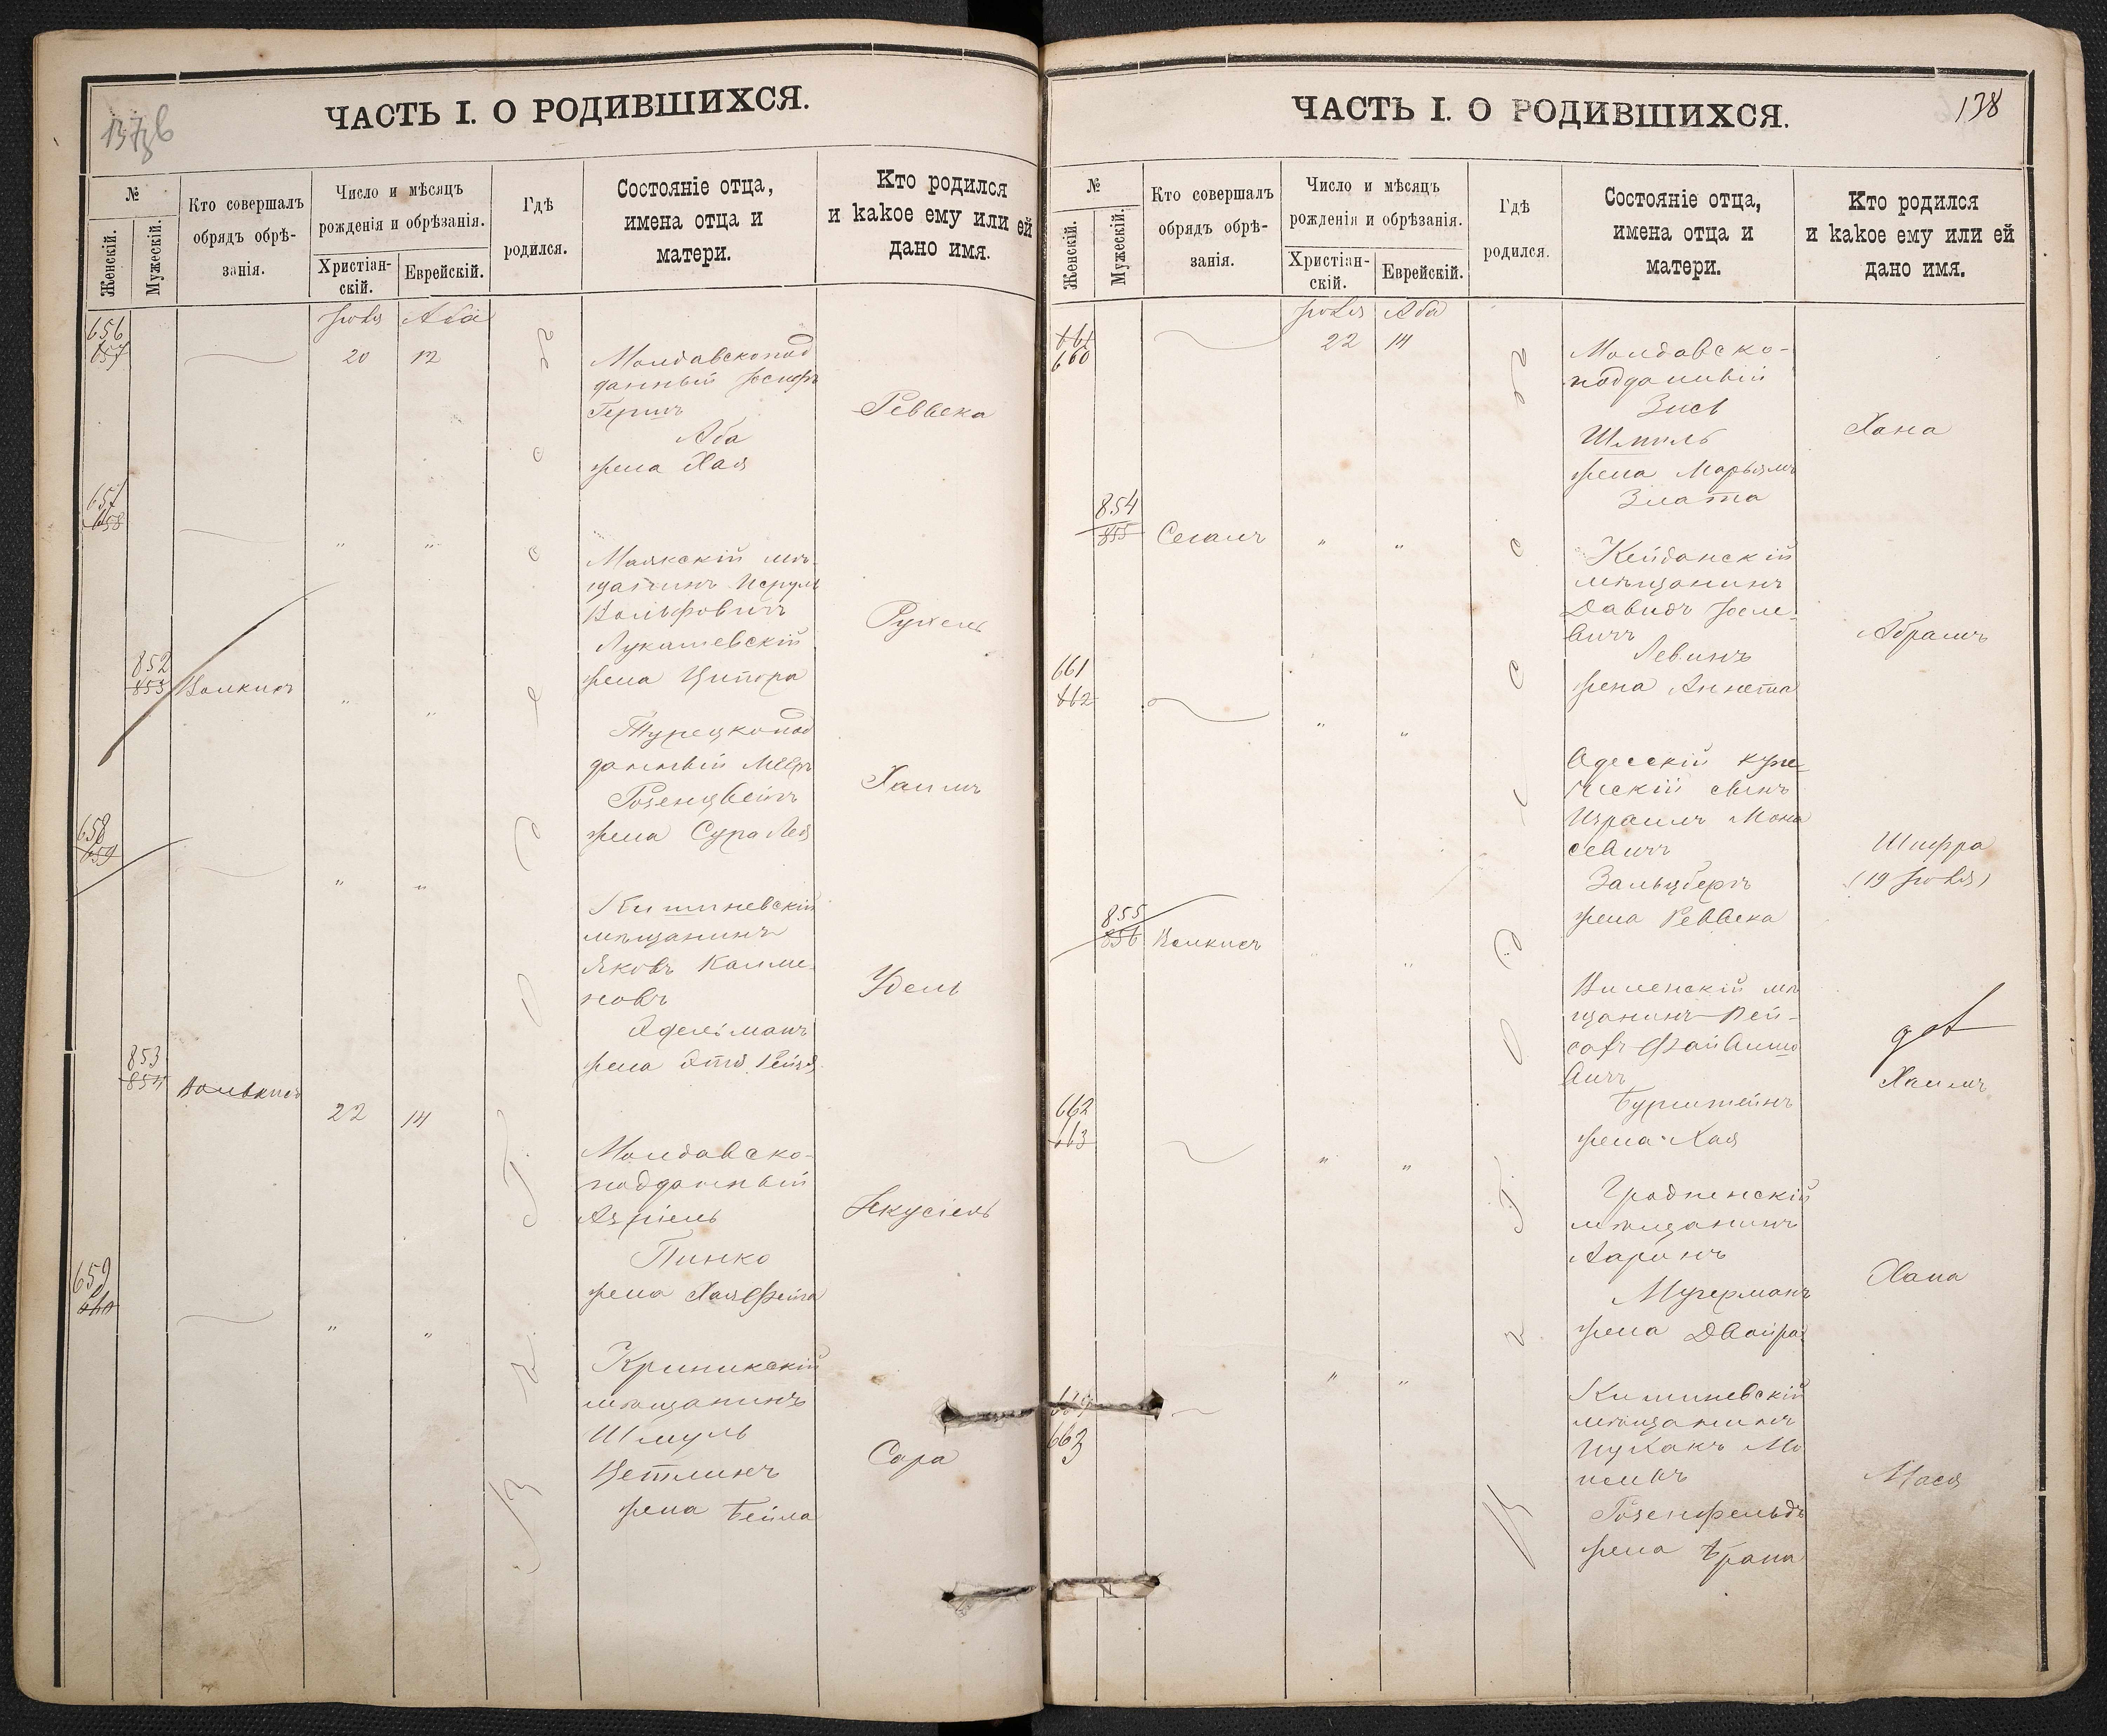 ЧАСТЬ I. О РОДИВШИХСЯ.
№
Женскій.
Мужескій.
Кто совершалъ
обрядъ обрѣ-
занія.
Число и мѣсяцъ
рожденія и обрѣзанія.
Христіан-
скій.
Еврейскій.
Гдѣ
родился.
Состояніе отца,
имена отца и
матери.
Кто родился
и какое ему или ей
дано имя.
Іюля Аба
656
657
20 12
Молдавскопод
данный Іосифъ
Гершъ
Аба
жена Хая
Реввека
657
658
" "
Маякскій мѣ-
щанинъ Исруль
Вольфовичъ
Лукашевскій
жена Ципора
Рухель
852
853
Волкинъ
" "
Турецкопод
данный Мееръ
Розенцвейгъ
жена Сура Лея
Хаимъ
658
659
" "
Кишиневскій
мѣщанинъ
Яковъ Калме-
новъ
Адельманъ
жена Этя Рейзя
Удель
853
854
Волькинъ
22 14
Молдавско-
подданный
Азріель
Пинко
жена Хая Фейга
Іекусіель
659
660
" "
Криникскій
мѣщанинъ
Шмуль
Цетлинъ
жена Бейла
Сара
Одесса
ЧАСТЬ I. О РОДИВШИХСЯ.
138
№
Женскій.
Мужескій.
Кто совершалъ
обрядъ обрѣ-
занія.
Число и мѣсяцъ
рожденія и обрѣзанія.
Христіан-
скій.
Еврейскій.
Гдѣ
родился.
Состояніе отца,
имена отца и
матери.
Кто родился
и какое ему или ей
дано имя.
Іюля Аба
661
660
22 14
Молдавско-
подданный
Зись
жена Марьямъ
Злата
Хана
854
855
Сегалъ
" "
Кейданскій
мѣщанинъ
Давидъ Іосе-
вичъ
Левинъ
жена Аннета
Абрамъ
661
662
" "
Одесскій купе-
ческій сынъ
Израиль Мона
севичъ
Зальцбергъ
жена Реввека
Шифра
(19 Іюля)
855
856
Волкинъ
" "
Виленскій мѣ
щанинъ
вичъ
Бурштейнъ
жена Хая
Хаимъ
662
663
" "
Гродненскій
мѣщанинъ
Ааронъ
жена Двойра
Хана
664
663
" "
Кишиневскій
мѣщанинъ
Ицхакъ Мо
Розенфельдъ
жена Брана
Мася